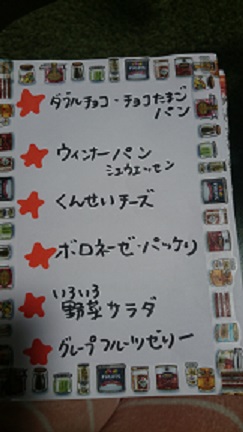 ダブルチョコ・チョコたまご
パン
ウィンナーパン
シュウエッセン
くんせいチーズ
ボロネーゼ・パッケリ
いろいろ
野菜サラダ
グレープフルーツゼリー